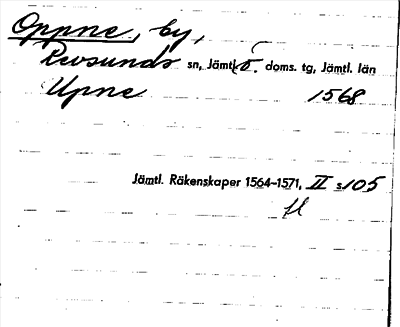 Oppne, by,
Revsunds sn, Jämtl. ö. doms. tg, Jämtl. län
Upne 1568
Jämtl. Räkenskaper 1564–1571, II s. 105